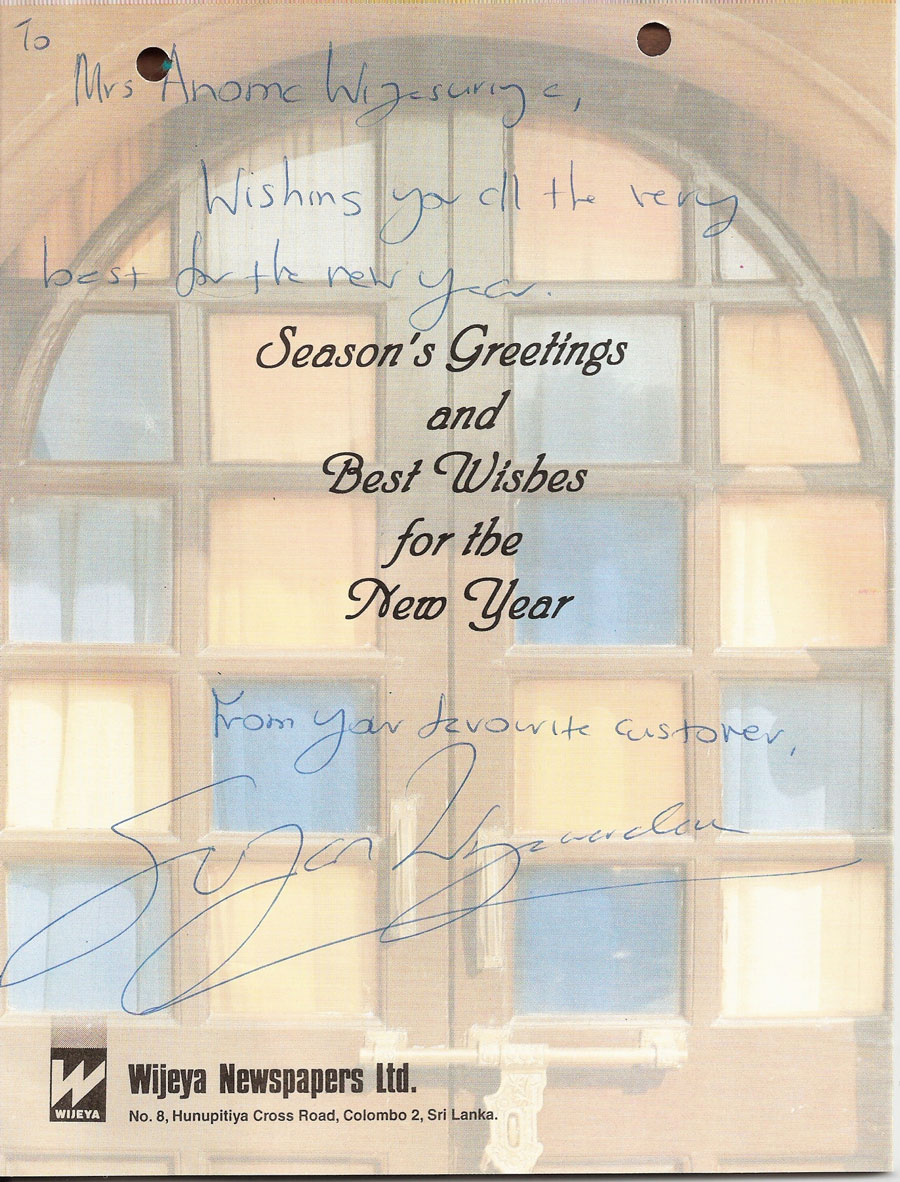 To
Mrs Anoma Wijesuriya,
Wishing you all the very
best for the new year.
Season's Greetings
and
Best Wishes
for the
New Year
From your favourite customer,
Sujan Wijewardene
WIJEYA
Wijeya Newspapers Ltd.
No. 8, Hunupitiya Cross Road, Colombo 2, Sri Lanka.